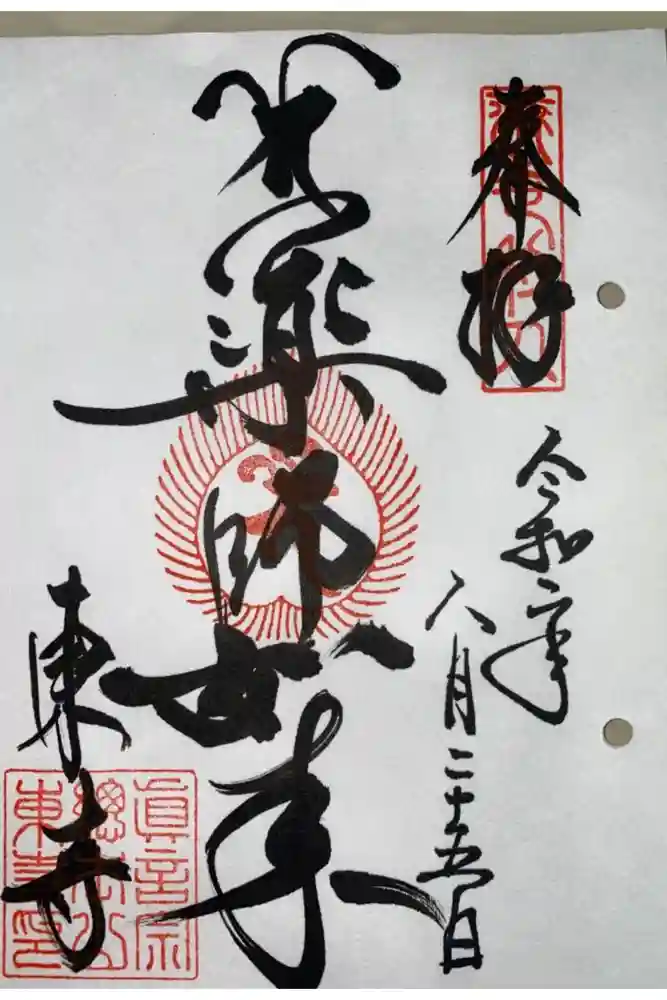 奉拝
令和二年
八月二十五日
薬師如来
東寺
眞言宗
總本山
東寺印